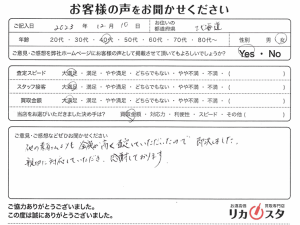 お客様の声をお聞かせください
ご記入日 2023年 12月 10日 お住いの都道府県 北海道
年齢 20代・30代・40代・50代・60代・70代・80代〜 性別 男・女
ご意見・ご感想を弊社ホームページにお客様の声として掲載させて頂いてもよろしいでしょうか? Yes・No
査定スピード 大満足・満足・やや満足・どちらでもない・やや不満・不満・( )
スタッフ接客 大満足・満足・やや満足・どちらでもない・やや不満・不満・( )
買取金額 大満足・満足・やや満足・どちらでもない・やや不満・不満・( )
当店をお選びいただきました決め手は? 買取金額・対応力・利便性・スピード・その他( )
ご意見・ご感想などぜひお聞かせください
他の業者さんよりも金額が高く査定していただいたので即決しました。
親切に対応していただき、感謝しております。
ご協力ありがとうございました。
この度は誠にありがとうございました。
お酒高価買取専門店
リカスタ